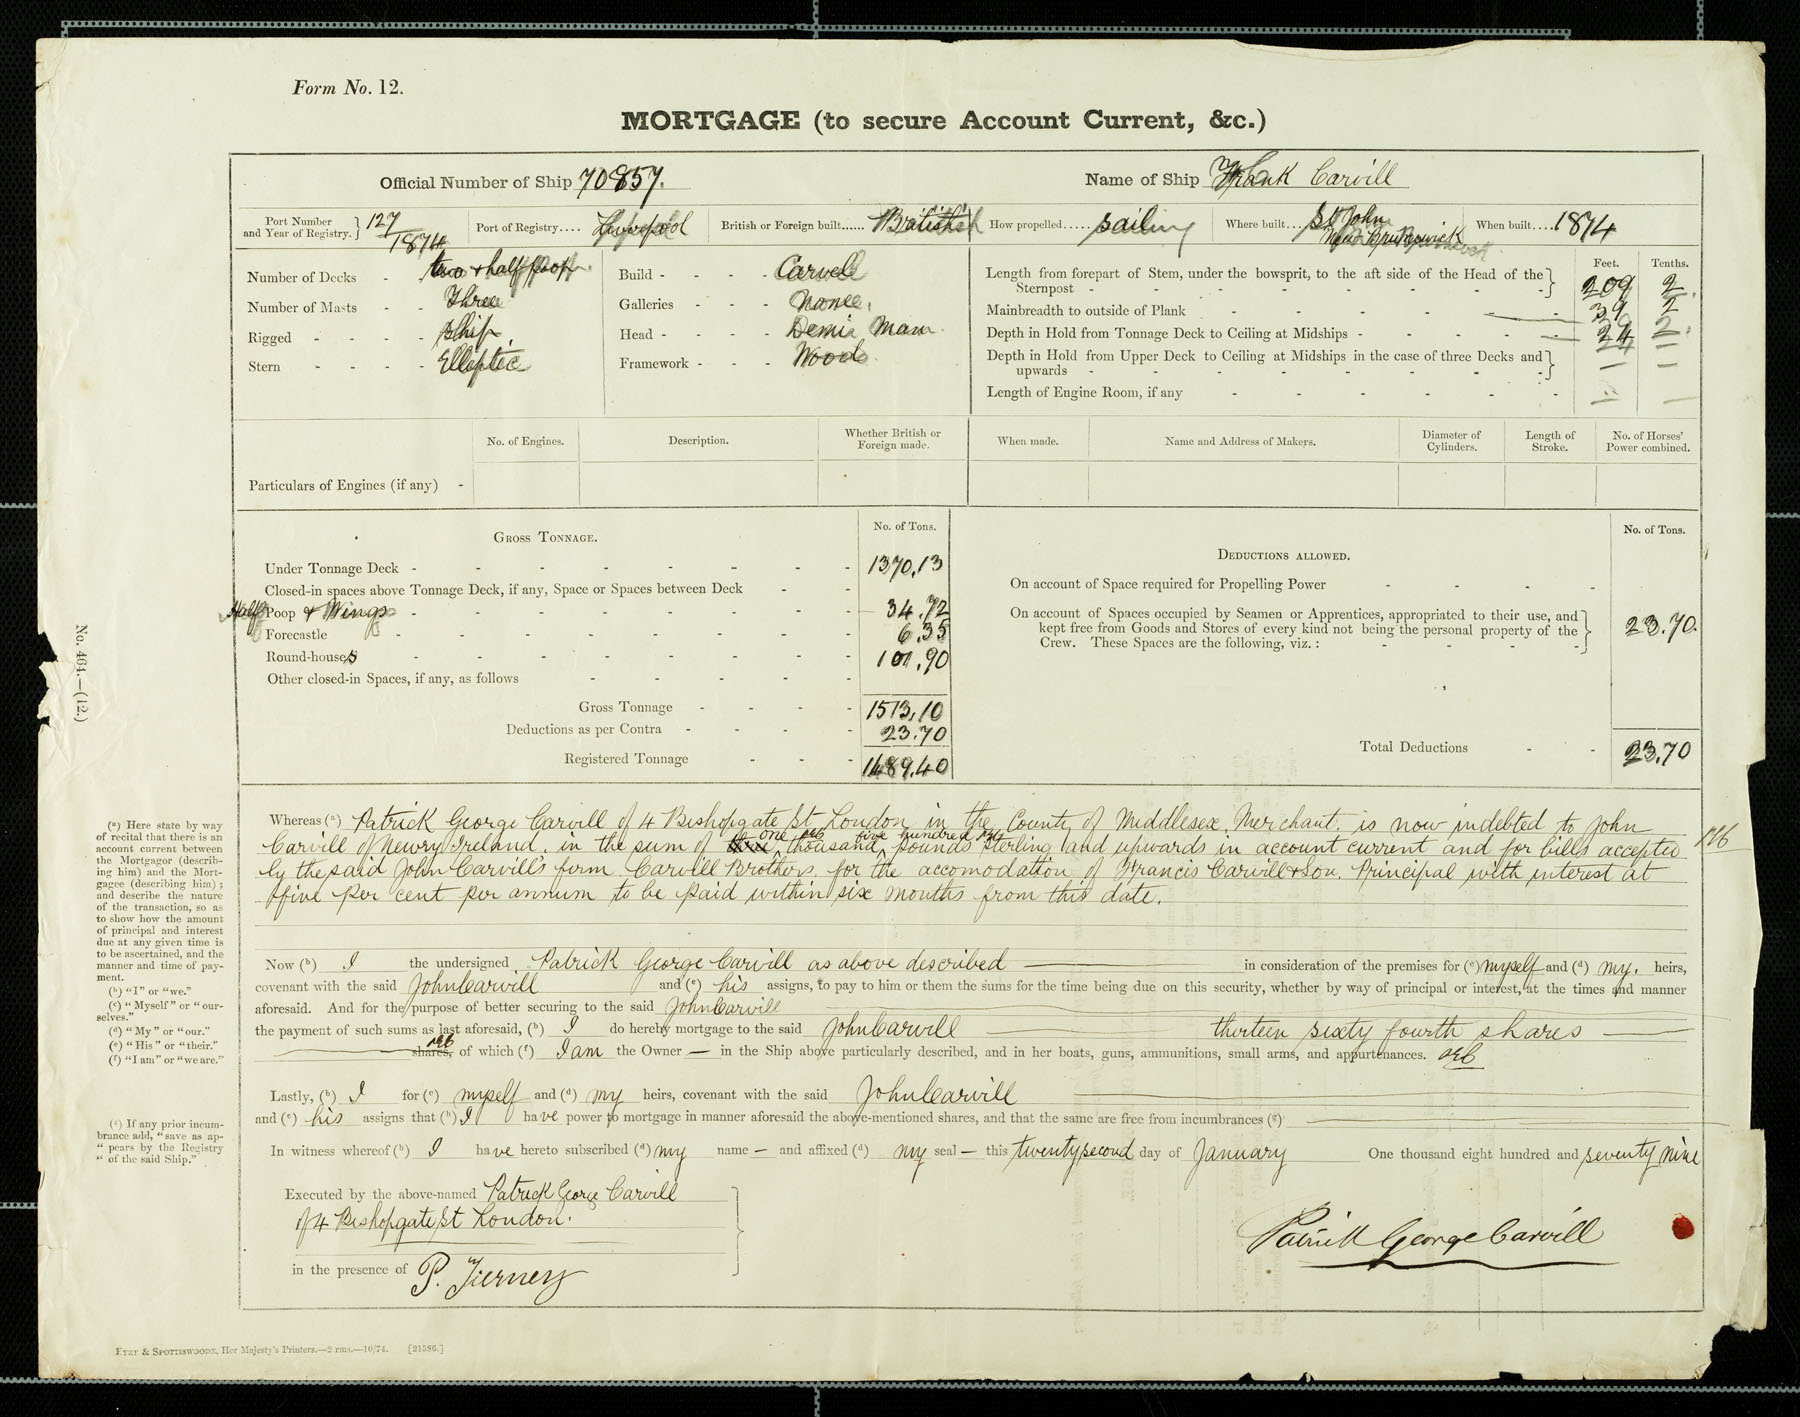 Form No. 12.
MORTGAGE (to secure Account Current, &c.)
Official Number of Ship 70857.
Name of Ship Frank Carvill
Port Number and Year of Registry. } 127/1874
Port of Registry.... Liverpool
British or Foreign built...... British
How propelled..... sailing
Where built.... St John New Brunswick
When built.... 1874
Number of Decks - two & half poop
Number of Masts - - Three
Rigged - - - - Ship
Stern - - - - Elliptic
Build - - - - Carvel
Galleries - - - None
Head - - - - Demi Man
Framework - - - Wood
Feet. Tenths.
Length from forepart of Stem, under the bowsprit, to the aft side of the Head of the Sternpost 209 2
Mainbreadth to outside of Plank 39 2
Depth in Hold from Tonnage Deck to Ceiling at Midships 24 2
Depth in Hold from Upper Deck to Ceiling at Midships in the case of three Decks and upwards — —
Length of Engine Room, if any — —
No. of Engines. Description. Whether British or Foreign made. When made. Name and Address of Makers. Diameter of Cylinders. Length of Stroke. No. of Horses' Power combined.
Particulars of Engines (if any) -
GROSS TONNAGE. No. of Tons.
Under Tonnage Deck 1370.13
Closed-in spaces above Tonnage Deck, if any, Space or Spaces between Deck
Half Poop & Wings 34.72
Forecastle 6.35
Round-houses 101.90
Other closed-in Spaces, if any, as follows
Gross Tonnage 1513.10
Deductions as per Contra 23.70
Registered Tonnage 1489.40
DEDUCTIONS ALLOWED. No. of Tons.
On account of Space required for Propelling Power
On account of Spaces occupied by Seamen or Apprentices, appropriated to their use, and
kept free from Goods and Stores of every kind not being the personal property of the
Crew. These Spaces are the following, viz.: 23.70.
Total Deductions 23.70
Whereas (a) Patrick George Carvill of 4 Bishopgate St London in the County of Middlesex Merchant. is now indebted to John
Carvill of Newry Ireland. in the sum of one thousand five hundred pounds sterling and upwards in account current and for bills accepted
by the said John Carvill's firm Carvill Brothers, for the accomodation of Francis Carvill & Son. Principal with interest at
ffive per cent per annum to be paid within six months from this date.
Now (b) I the undersigned Patrick George Carvill as above described — in consideration of the premises for (c) myself and (d) my. heirs,
covenant with the said John Carvill and (e) his assigns, to pay to him or them the sums for the time being due on this security, whether by way of principal or interest, at the times and manner
aforesaid. And for the purpose of better securing to the said John Carvill
the payment of such sums as last aforesaid, (b) I do hereby mortgage to the said John Carvill — thirteen sixty fourth shares —
shares, of which (f) I am the Owner — in the Ship above particularly described, and in her boats, guns, ammunitions, small arms, and appurtenances.
Lastly, (b) I for (c) myself and (d) my heirs, covenant with the said John Carvill
and (e) his assigns that (b) I have power to mortgage in manner aforesaid the above-mentioned shares, and that the same are free from incumbrances (g)
In witness whereof (b) I have hereto subscribed (d) my name — and affixed (d) my seal — this twenty second day of January One thousand eight hundred and seventy nine
Executed by the above-named Patrick George Carvill
of 4 Bishopgate St London.
in the presence of P. Tierney
Patrick George Carvill
No. 464.—(12.)
(a) Here state by way
of recital that there is an
account current between
the Mortgagor (describ-
ing him) and the Mort-
gagee (describing him);
and describe the nature
of the transaction, so as
to show how the amount
of principal and interest
due at any given time is
to be ascertained, and the
manner and time of pay-
ment.
(b) "I" or "we."
(c) "Myself" or "our-
selves."
(d) "My" or "our."
(e) "His" or "their."
(f) "I am" or "we are."
(g) If any prior incum-
brance add, "save as ap-
"pears by the Registry
"of the said Ship."
EYRE & SPOTTISWOODE, Her Majesty's Printers.—2 rms.—10/74. [21586.]